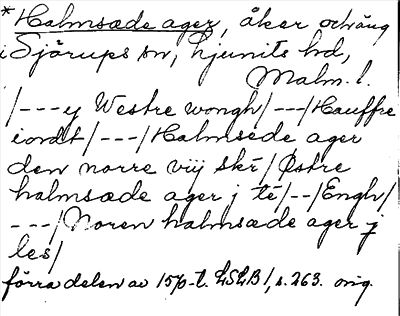 *Halmsæde ager, åker och äng
i Sjörups sn, Ljunits hd,
Malm. l.
/---y Westre wongh/---/Hauffre
iordt/---/Halmsede ager
den norre viij skr̄/Østre
halmsæde ager j te/--/Engh/
---/Noren halmsæde ager j
les/
förra delen av 1570-t. LSLB 1, s. 263. orig.